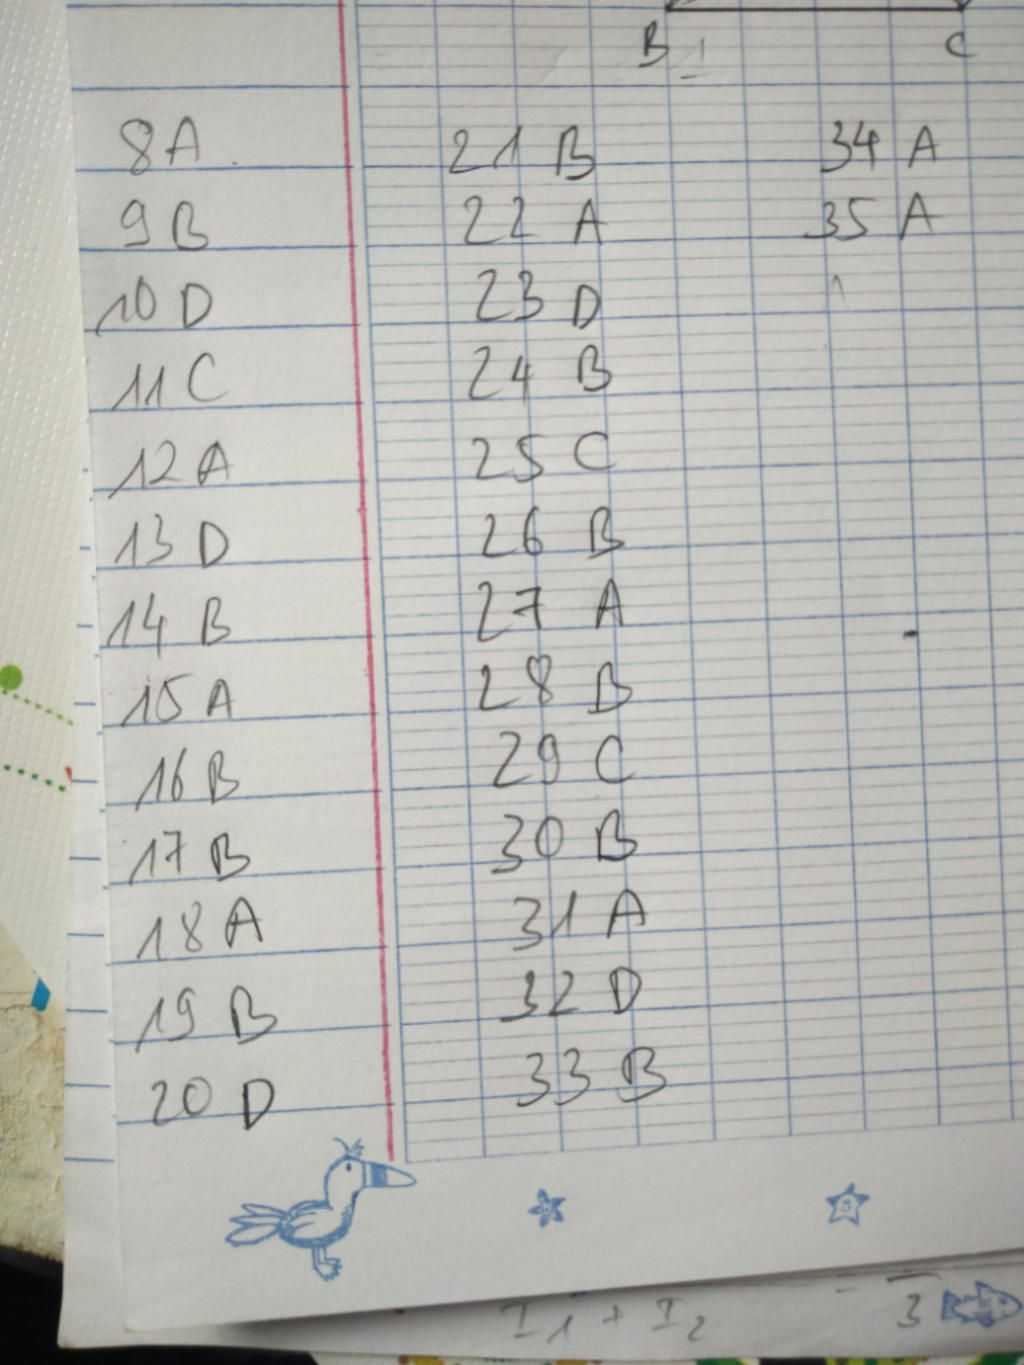 B 1 C
8A.
9B
10 D
11 C
12 A
13 D
14 B
15 A
16 B
17 B
18 A
19 B
20 D
21 B
22 A
23 D
24 B
25 C
26 B
27 A
28 B
29 C
30 B
31 A
32 D
33 B
34 A
35 A
I1 + I2
3